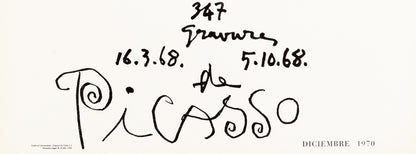 347
gravures
16.3.68. 5.10.68.
de
Picasso
DICIEMBRE 1970